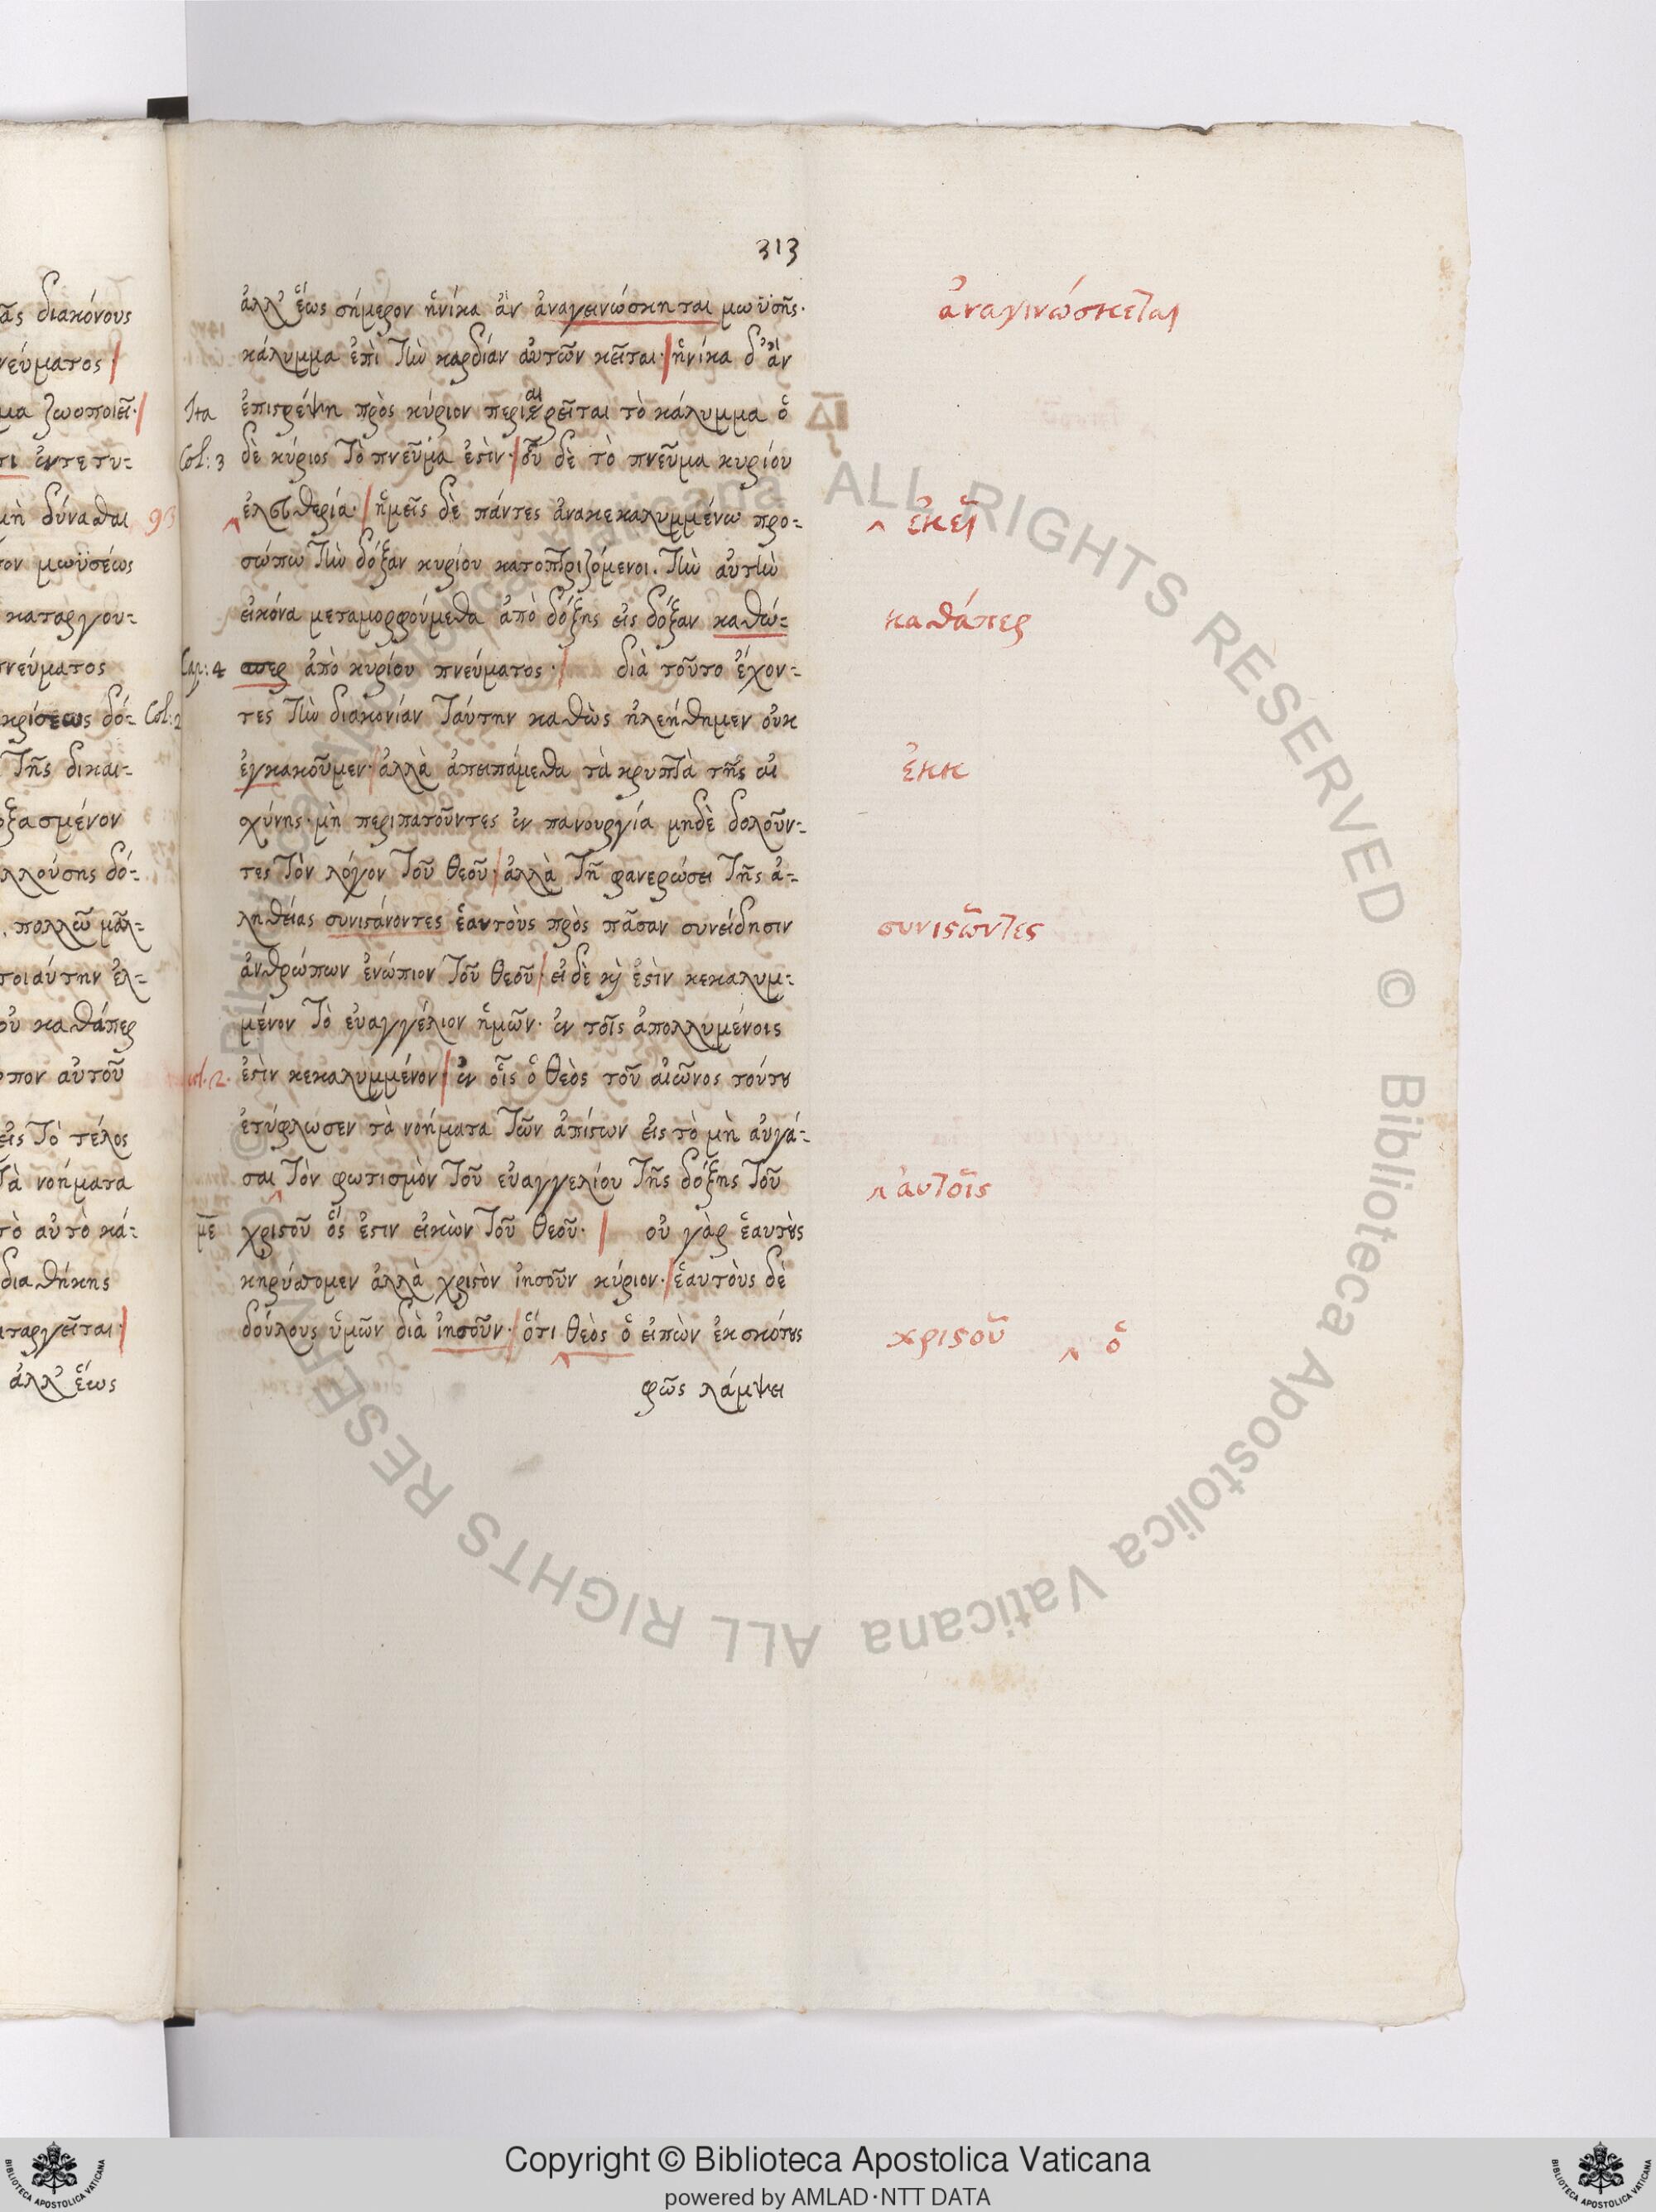 313
ἀλλ’ ἕως σήμερον ἡνίκα ἂν ἀναγεινώσκηται μωϋσῆς·
ἀναγινώσκεται
κάλυμμα ἐπὶ τὴν καρδίαν αὐτῶν κεῖται· ἡνίκα δ’ ἂν
Ita ἐπιστρέψη πρὸς κύριον περιαιρεῖται τὸ κάλυμμα ὁ
Col: 3 δὲ κύριος τὸ πνεῦμα ἐστὶν· οὗ δὲ τὸ πνεῦμα κυρίου
ἐλευθερία· ἡμεῖς δὲ πάντες ἀνακεκαλυμμένω προ-
ἐκεῖ
σώπω τὴν δόξαν κυρίου κατοπτριζόμενοι. τὴν αὐτὴν
εἰκόνα μεταμορφούμεθα ἀπὸ δόξης εἰς δόξαν καθώ-
καθάπερ
Cap: 4 σπερ ἀπὸ κυρίου πνεύματος· διὰ τοῦτο ἔχον-
τες τὴν διακονίαν ταύτην καθὼς ἠλεήθημεν οὐκ
ἐγκακοῦμεν· ἀλλὰ ἀπειπάμεθα τὰ κρυπτὰ τῆς αἰ
ἐκκ
σχύνης· μὴ περιπατοῦντες ἐν πανουργία μηδὲ δολοῦν-
τες τὸν λόγον τοῦ θεοῦ· ἀλλὰ τῆ φανερώσει τῆς ἀ-
ληθείας συνιστάνοντες ἑαυτοὺς πρὸς πᾶσαν συνείδησιν
συνιστῶντες
ἀνθρώπων ἐνώπιον τοῦ θεοῦ· εἰ δὲ κὶ ἐστὶν κεκαλυμ-
μένον τὸ εὐαγγέλιον ἡμῶν· ἐν τοῖς ἀπολλυμένοις
col. 2. ἐστὶν κεκαλυμμένον· ἐν οἷς ὁ θεὸς τοῦ αἰῶνος τούτου
ἐτύφλωσεν τὰ νοήματα τῶν ἀπίστων εἰς τὸ μὴ αὐγά-
σαι τὸν φωτισμὸν τοῦ εὐαγγελίου τῆς δόξης τοῦ
αὐτοῖς
με χριστοῦ ὅς ἐστιν εἰκὼν τοῦ θεοῦ· οὐ γὰρ ἑαυτοὺς
κηρύσσομεν ἀλλὰ χριστὸν ἰησοῦν κύριον· ἑαυτοὺς δὲ
δούλους ὑμῶν διὰ ἰησοῦν· ὅτι θεὸς ὁ εἰπὼν ἐκ σκότους
χριστοῦ ὁ
φῶς λάμψει
ᾶς διακόνους
νεύματος
μα ζωοποιεῖ·
τι ἐντετυ-
μὴ δύνασθαι
τον μωϋσέως
καταργου-
πνεύματος
κρίσεως δό- Col: 2
τῆς δικαι-
οξασμένον
αλλούσης δό-
. πολλῶ μᾶλ-
τοιαύτην ἐλ-
οὐ καθάπερ
ωπον αὐτοῦ
εἰς τὸ τέλος
τὰ νοήματα
τὸ αὐτὸ κά-
διαθήκης
αταργεῖται·
ἀλλ’ ἕως
© Biblioteca Apostolica Vaticana ALL RIGHTS RESERVED © Biblioteca Apostolica Vaticana ALL RIGHTS RESERVED
Copyright © Biblioteca Apostolica Vaticana
powered by AMLAD·NTT DATA
BIBLIOTECA APOSTOLICA VATICANA
BIBLIOTECA APOSTOLICA VATICANA